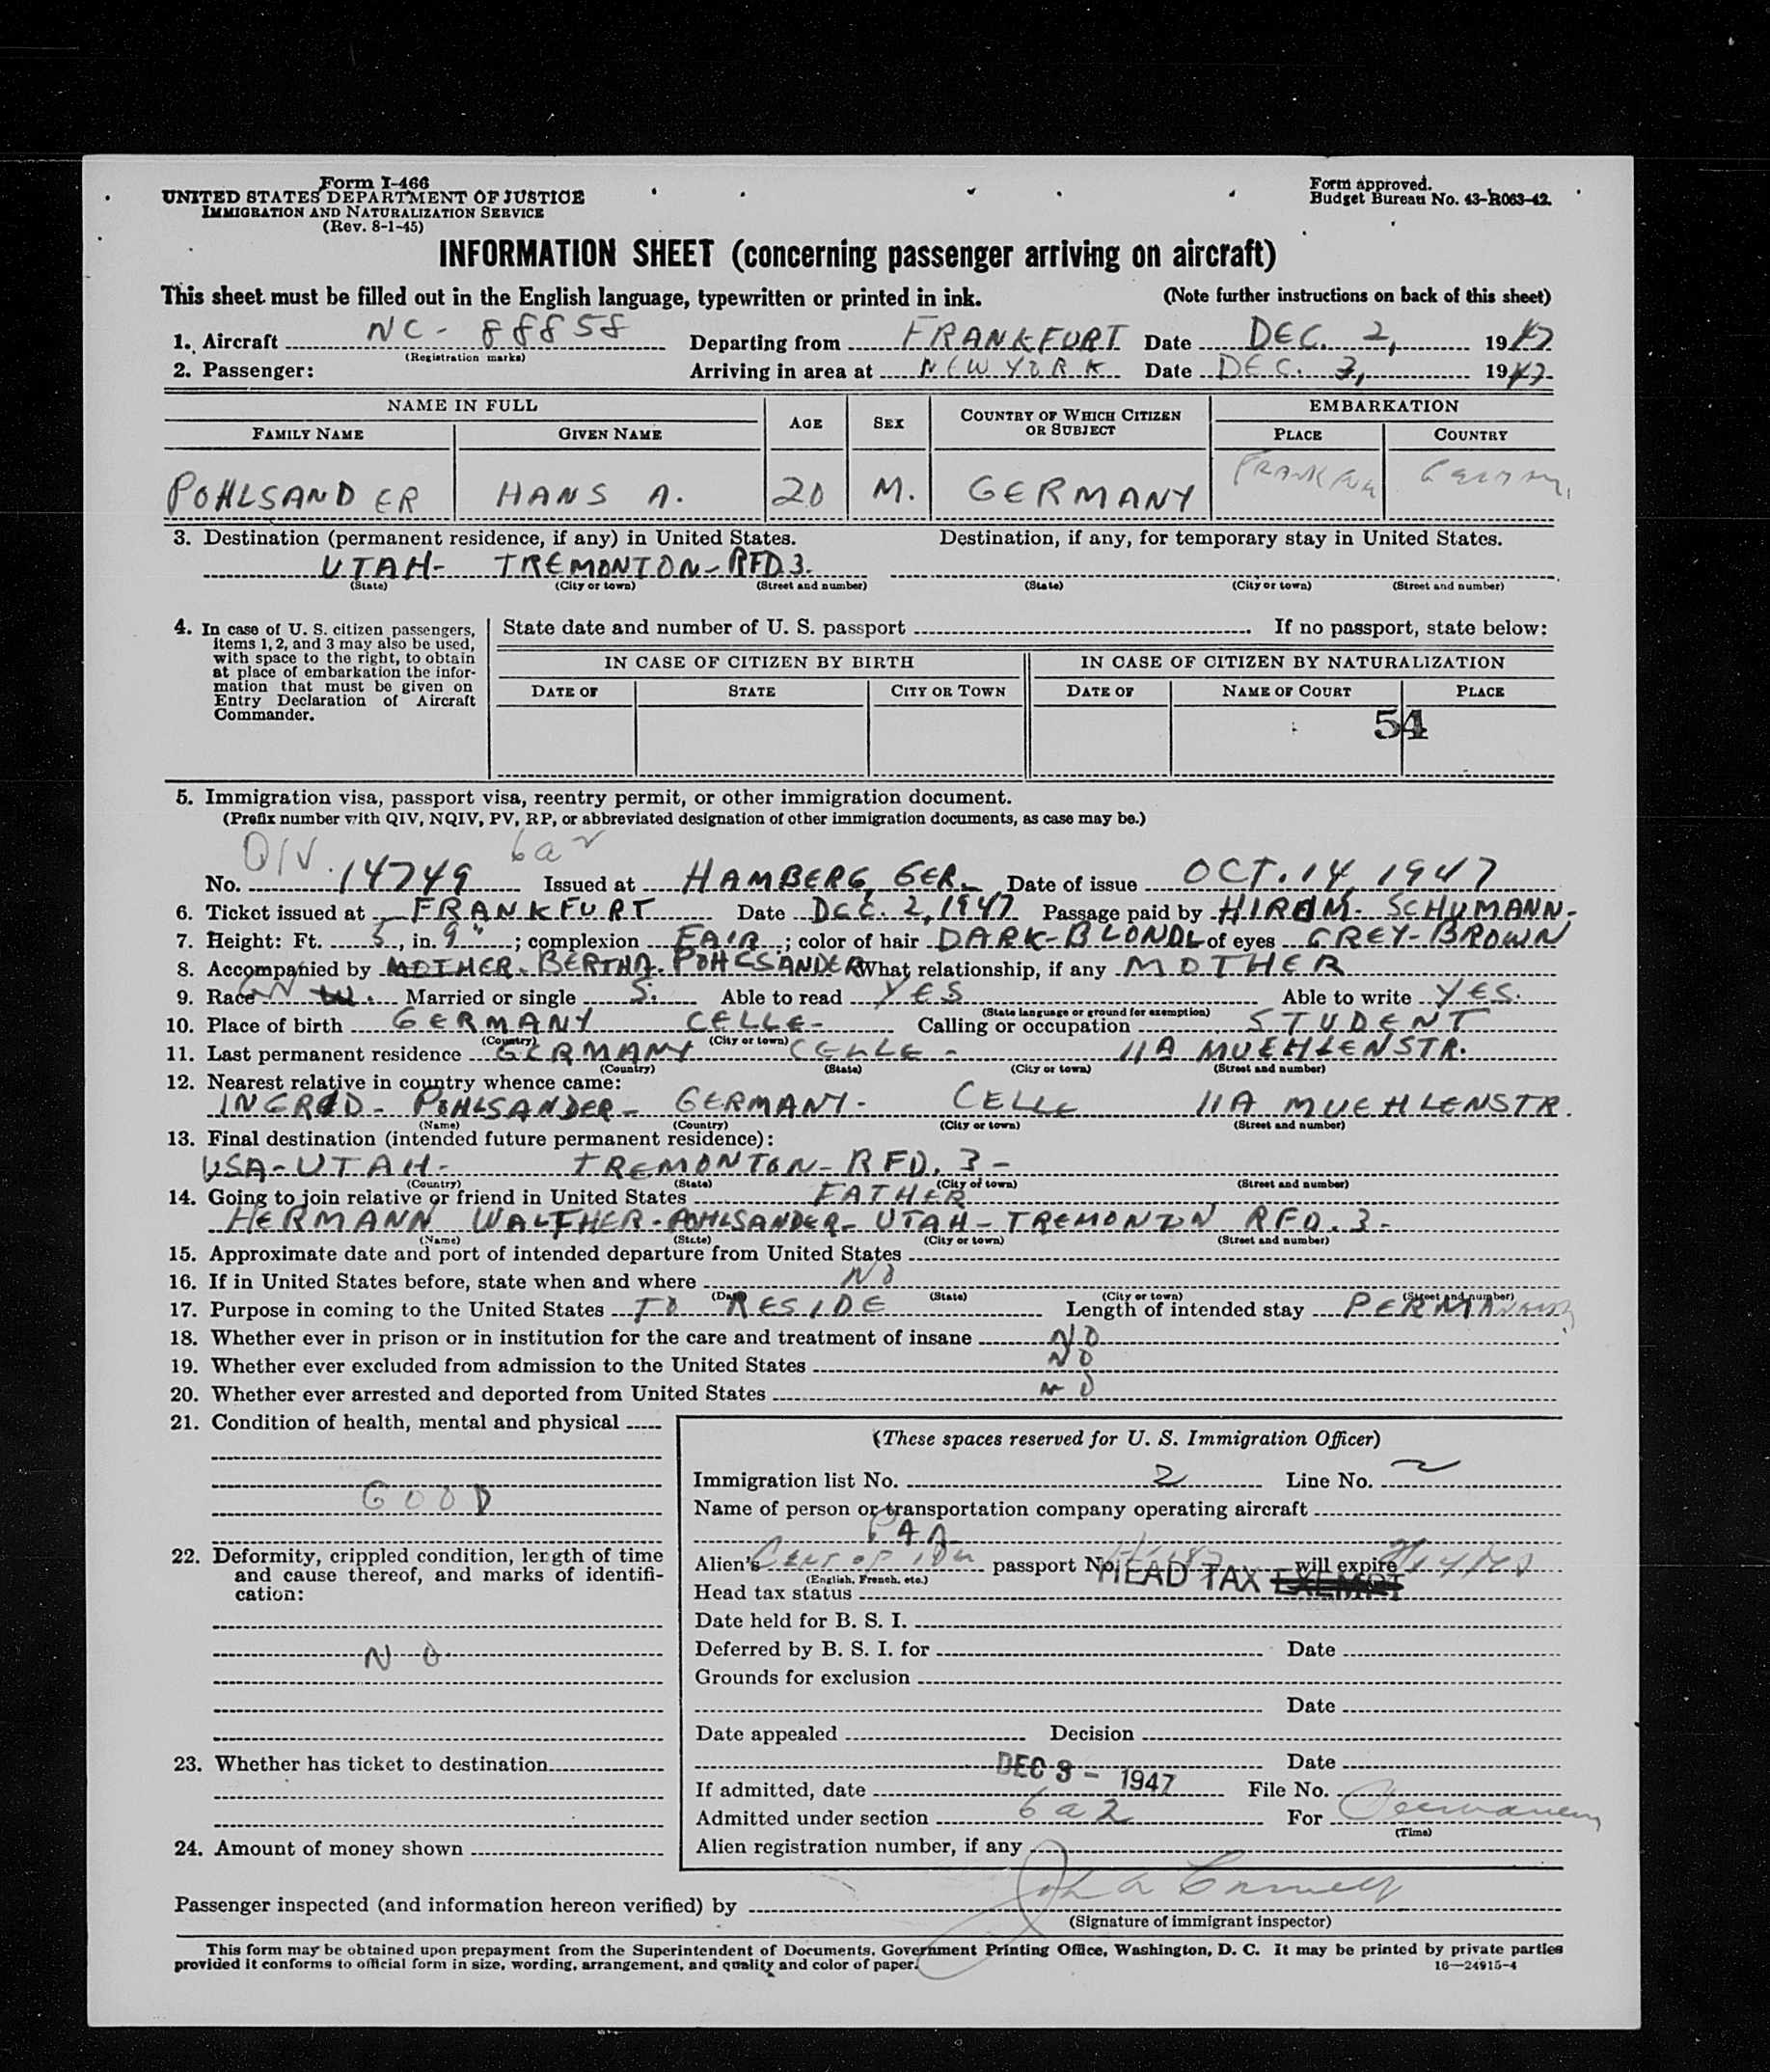 Form I-466
UNITED STATES DEPARTMENT OF JUSTICE
IMMIGRATION AND NATURALIZATION SERVICE
(Rev. 8-1-45)
Form approved.
Budget Bureau No. 43-R063-42.
INFORMATION SHEET (concerning passenger arriving on aircraft)
This sheet must be filled out in the English language, typewritten or printed in ink. (Note further instructions on back of this sheet)
1. Aircraft NC- 88858 Departing from FRANKFURT Date DEC. 2, 1947
(Registration marks)
2. Passenger: Arriving in area at NEW YORK Date DEC. 3, 1947
NAME IN FULL AGE SEX COUNTRY OF WHICH CITIZEN OR SUBJECT EMBARKATION
FAMILY NAME GIVEN NAME PLACE COUNTRY
POHLSANDER HANS A. 20 M. GERMANY
3. Destination (permanent residence, if any) in United States. Destination, if any, for temporary stay in United States.
UTAH- TREMONTON- RFD3.
(State) (City or town) (Street and number) (State) (City or town) (Street and number)
4. In case of U. S. citizen passengers, items 1, 2, and 3 may also be used, with space to the right, to obtain at place of embarkation the information that must be given on Entry Declaration of Aircraft Commander.
State date and number of U. S. passport If no passport, state below:
IN CASE OF CITIZEN BY BIRTH IN CASE OF CITIZEN BY NATURALIZATION
DATE OF STATE CITY OR TOWN DATE OF NAME OF COURT PLACE
54
5. Immigration visa, passport visa, reentry permit, or other immigration document.
(Prefix number with QIV, NQIV, PV, RP, or abbreviated designation of other immigration documents, as case may be.)
QIV 6a2
No. 14749 Issued at HAMBERG, GER. Date of issue OCT. 14, 1947
6. Ticket issued at FRANKFURT Date DEC. 2, 1947 Passage paid by HIRAM- SCHUMANN-
7. Height: Ft. 5, in. 9"; complexion FAIR; color of hair DARK-BLOND of eyes GREY-BROWN
8. Accompanied by MOTHER- BERTHA- POHLSANDER What relationship, if any MOTHER
9. Race W. Married or single S. Able to read YES Able to write YES.
(State language or ground for exemption)
10. Place of birth GERMANY CELLE- Calling or occupation STUDENT
(Country) (City or town)
11. Last permanent residence GERMANY CELLE- 11A MUEHLENSTR.
(Country) (State) (City or town) (Street and number)
12. Nearest relative in country whence came:
INGRID- POHLSANDER- GERMANY- CELLE 11A MUEHLENSTR.
(Name) (Country) (City or town) (Street and number)
13. Final destination (intended future permanent residence):
USA-UTAH- TREMONTON- RFD. 3-
(Country) (State) (City or town) (Street and number)
14. Going to join relative or friend in United States FATHER
HERMANN WALTHER-POHLSANDER- UTAH- TREMONTON RFD. 3-
(Name) (State) (City or town) (Street and number)
15. Approximate date and port of intended departure from United States
16. If in United States before, state when and where NO
(Date) (State) (City or town) (Street and number)
17. Purpose in coming to the United States TO RESIDE Length of intended stay
18. Whether ever in prison or in institution for the care and treatment of insane NO
19. Whether ever excluded from admission to the United States NO
20. Whether ever arrested and deported from United States NO
21. Condition of health, mental and physical
GOOD
22. Deformity, crippled condition, length of time and cause thereof, and marks of identification:
NO
23. Whether has ticket to destination
24. Amount of money shown
(These spaces reserved for U. S. Immigration Officer)
Immigration list No. 2 Line No. 2
Name of person or transportation company operating aircraft
PAA
Alien's passport No. will expire
(English, French, etc.)
HEAD TAX EXEMPT
Head tax status
Date held for B. S. I.
Deferred by B. S. I. for Date
Grounds for exclusion
Date
Date appealed Decision
Date
If admitted, date DEC 3 - 1947 File No.
Admitted under section 6a2 For Permanent
(Time)
Alien registration number, if any
Passenger inspected (and information hereon verified) by
(Signature of immigrant inspector)
This form may be obtained upon prepayment from the Superintendent of Documents, Government Printing Office, Washington, D. C. It may be printed by private parties
provided it conforms to official form in size, wording, arrangement, and quality and color of paper. 16—24915-4